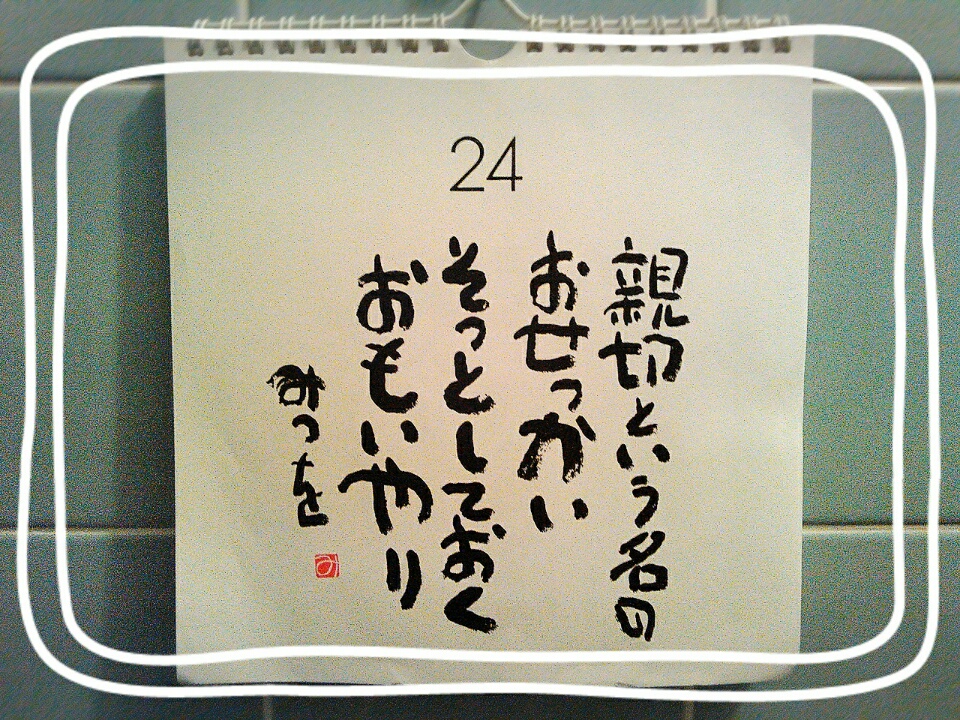 24
親切という名の
おせっかい
そっとしておく
おもいやり
みつを
み